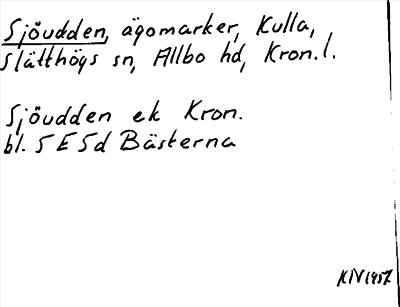 Sjöudden, ägomarker, Kulla,
Slätthögs sn, Allbo hd, Kron. l.
Sjöudden ek Kron.
bl. 5 E 5d Bästerna
KIV 1957